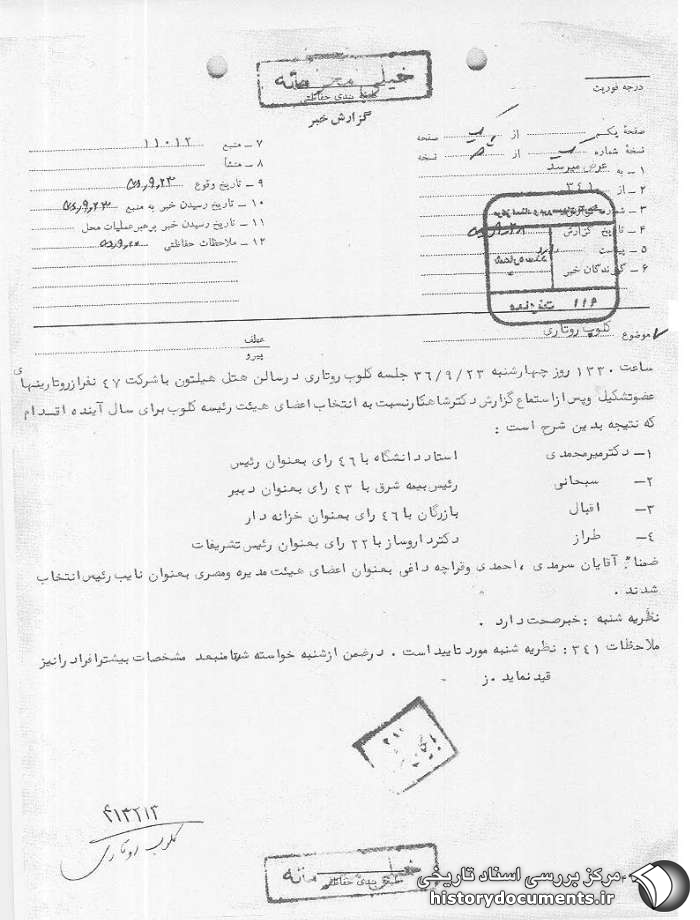 خیلی محرمانه
طبقه بندی حفاظتی
گزارش خبر
درجه فوریت
صفحه یکم از یک صفحه
نسخه شماره از نسخه
۱ ـ به عرض میرسد
۲ ـ از ۳۴۱
۳ ـ شماره
۴ ـ تاریخ گزارش
۵ ـ پیوست دارد
۶ ـ گیرندگان خبر
۷ ـ منبع ۱۱۰۱۲
۸ ـ منشأ
۹ ـ تاریخ وقوع
۱۰ ـ تاریخ رسیدن خبر به منبع
۱۱ ـ تاریخ رسیدن خبر برهبر عملیات محل
۱۲ ـ ملاحظات حفاظتی
موضوع کلوب روتاری
عطف
پیرو
ساعت ۱۳۳۰ روز چهارشنبه ۳۶/۹/۲۳ جلسه کلوب روتاری در سالن هتل هیلتون با شرکت ۴۷ نفر از روتارینهای
عضو تشکیل و پس از استماع گزارش دکتر شاهکار نسبت به انتخاب اعضای هیئت رئیسه کلوب برای سال آینده اقدام
که نتیجه بدین شرح است :
۱ـ دکتر میرمحمدی استاد دانشگاه با ۴۶ رای بعنوان رئیس
۲ـ سبحانی رئیس بیمه شرق با ۴۳ رای بعنوان دبیر
۳ـ اقبال بازرگان با ۴۶ رای بعنوان خزانه دار
۴ـ طراز دکتر داروساز با ۲۲ رای بعنوان رئیس تشریفات
ضمناً آقایان سرمدی ، احمدی و قراچه داغی بعنوان اعضای هیئت مدیره ومصری بعنوان نایب رئیس انتخاب
شدند .
نظریه شنبه : خبر صحت دارد .
ملاحظات ۳۴۱ : نظریه شنبه مورد تایید است . در ضمن از شنبه خواسته شد من بعد مشخصات بیشتر افراد را نیز
قید نماید . ز
۴۱۳۲۱۲
کلوب روتاری
خیلی محرمانه
طبقه بندی حفاظتی
مرکز بررسی اسناد تاریخی
historydocuments.ir